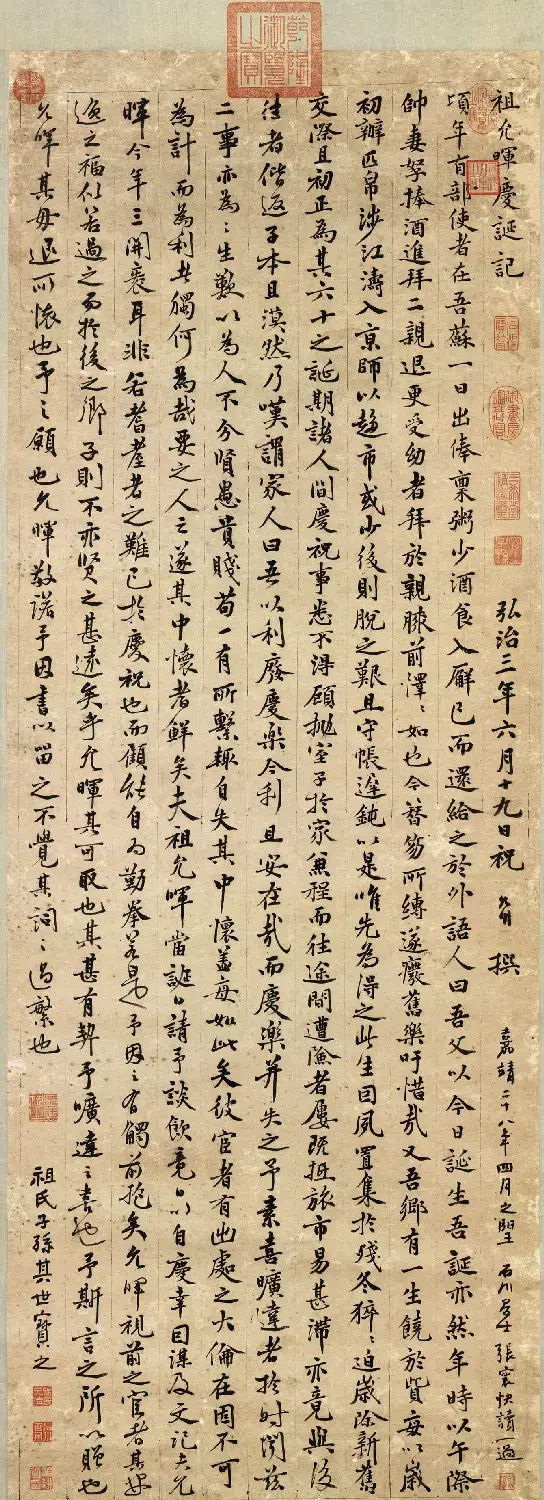 乾隆御覽之寶
祖允暉慶誕記
弘治三年六月十九日祝允明撰
嘉靖二十八年四月之望 石川居士張寰快讀一過
頃年有部使者在吾蘇一日出俸稟粥少酒食入廨已而還給之於外語人曰吾父以今日誕生吾誕亦然年時以午際
帥妻孥捧酒進拜二親退更受幼者拜於親膝前澤澤如也今簪笏所縛遂癈舊樂吁惜哉又吾鄉有一生饒於貲每以歲
初辦匹帛涉江濤入京師以趨市或少後則脫之艱且守帳遲鈍以是唯先為得之此生因夙置集於殘冬猝猝迫歲除新舊
交際且初正為其六十之誕期諸人間慶祝事悉不得顧拋室子於家兼程而往途間遭險者屢既抵旅市易甚滯亦竟與後
往者偕返子本且漠然乃嘆謂家人曰吾以利廢慶樂今利且安在哉而慶樂并失之予素喜曠達者於時聞茲
二事亦為之生歎以為人不分賢愚貴賤苟一有所繫趣自失其中懷蓋每如此矣彼宦者有出處之大倫在固不可
為計而為利者獨何為哉要之人之遂其中懷者鮮矣夫祖允暉當誕日請予談飲竟日以自慶幸因謀及文記夫允
暉今年三開袠耳非若耆耋者之難已於慶祝也而顧能自為勤拳若是予因之有觸前抱矣允暉視前之宦者其
迨之福似若過之而於後之鄉子則不亦賢之甚遠矣乎允暉其可取也其甚有契予曠達之喜也予斯言之所以贈也
允暉其毋退所懷也予之願也允暉敬諾予因書以畱之不覺其詞之過繁也
祖氏子孫其世寶之